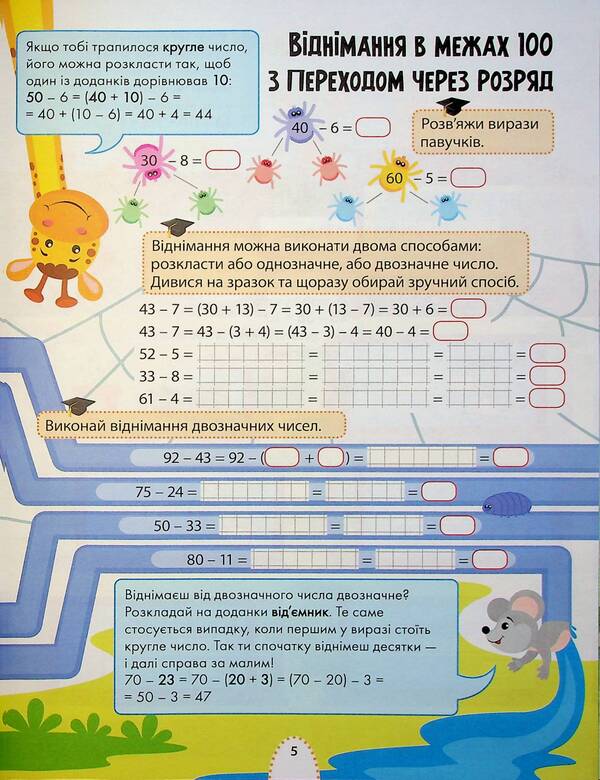 Віднімання в межах 100
з переходом через розряд
Якщо тобі трапилося кругле число,
його можна розкласти так, щоб
один із доданків дорівнював 10:
50 – 6 = (40 + 10) – 6 =
= 40 + (10 – 6) = 40 + 4 = 44
Розв'яжи вирази
павучків.
40 – 6 =
30 – 8 =
60 – 5 =
Віднімання можна виконати двома способами:
розкласти або однозначне, або двозначне число.
Дивися на зразок та щоразу обирай зручний спосіб.
43 – 7 = (30 + 13) – 7 = 30 + (13 – 7) = 30 + 6 =
43 – 7 = 43 – (3 + 4) = (43 – 3) – 4 = 40 – 4 =
52 – 5 = = =
33 – 8 = = =
61 – 4 = = =
Виконай віднімання двозначних чисел.
92 – 43 = 92 – ( + ) = =
75 – 24 = = =
50 – 33 = = =
80 – 11 = = =
Віднімаєш від двозначного числа двозначне?
Розкладай на доданки від'ємник. Те саме
стосується випадку, коли першим у виразі стоїть
кругле число. Так ти спочатку віднімеш десятки —
і далі справа за малим!
70 – 23 = 70 – (20 + 3) = (70 – 20) – 3 =
= 50 – 3 = 47
5